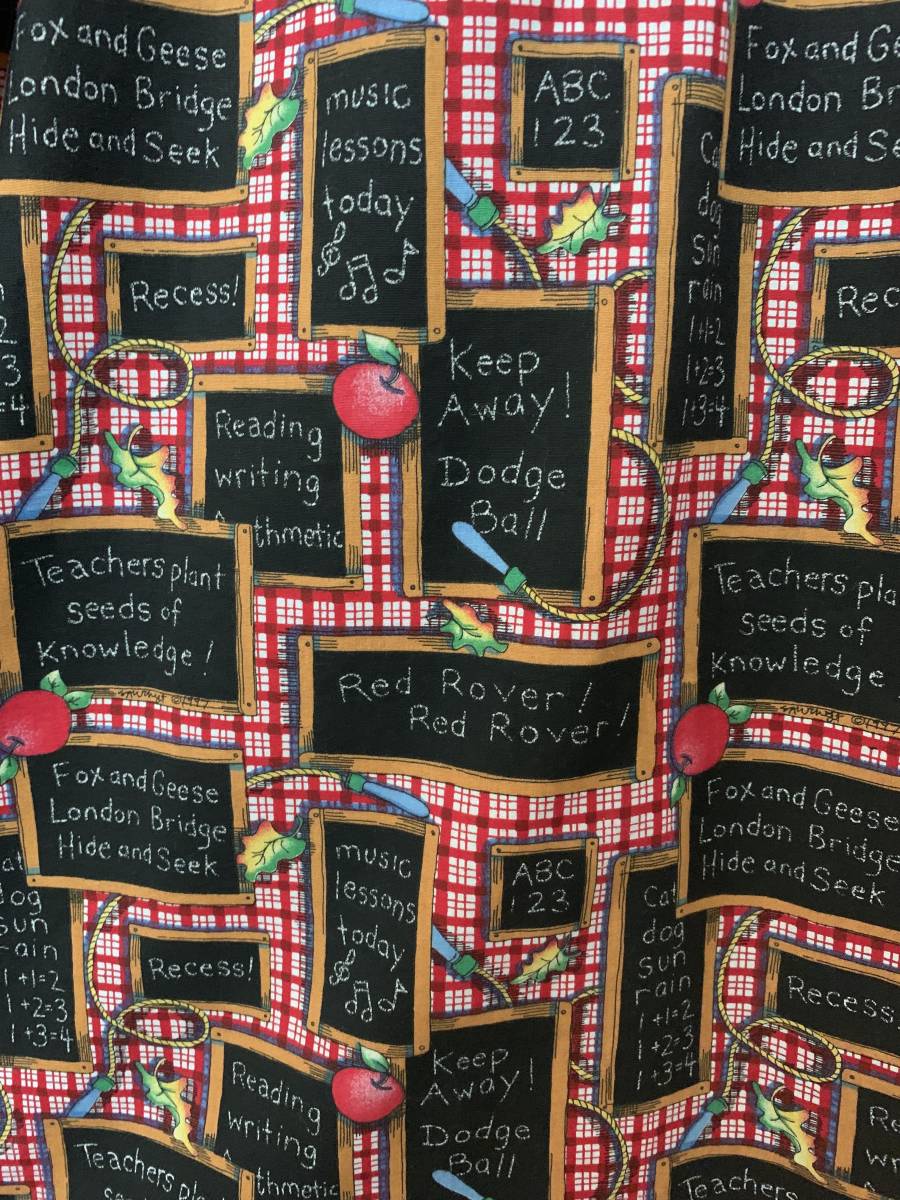 Fox and Geese
London Bridge
Hide and Seek
music
lessons
today
ABC
123
Fox and Ge
London Br
Hide and Se
Ca
dog
Sun
rain
1+1=2
1+2=3
1+3=4
2
3
=4
Recess!
Rec
Keep
Away!
Dodge
Ball
Reading
writing
thmetic
Teachers plant
seeds of
Knowledge!
©1997
Teachers pla
seeds of
Knowledge
Red Rover!
Red Rover!
Fox and Geese
London Bridge
Hide and Seek
music
lessons
today
ABC
123
Fox and Geese
London Bridge
Hide and Seek
at
dog
sun
rain
1+1=2
1+2=3
1+3=4
Recess!
Cat
dog
sun
rain
1+1=2
1+2=3
1+3=4
Recess
Keep
Away!
Dodge
Ball
Reading
writing
thmetic
Re
wr
Teachers pla
Teachers